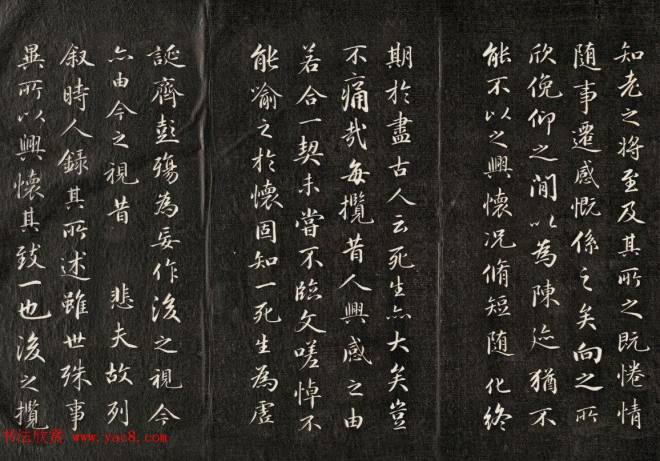 知老之将至及其所之既惓情
随事遷感慨係之矣向之所
欣俛仰之間以為陳迹猶不
能不以之興懷況脩短随化終
期於盡古人云死生亦大矣豈
不痛哉每攬昔人興感之由
若合一契未嘗不臨文嗟悼不
能喻之於懷固知一死生為虚
誕齊彭殤為妄作後之視今
亦由今之視昔 悲夫故列
叙時人錄其所述雖世殊事
異所以興懷其致一也後之攬
书法欣赏 www.yac8.com